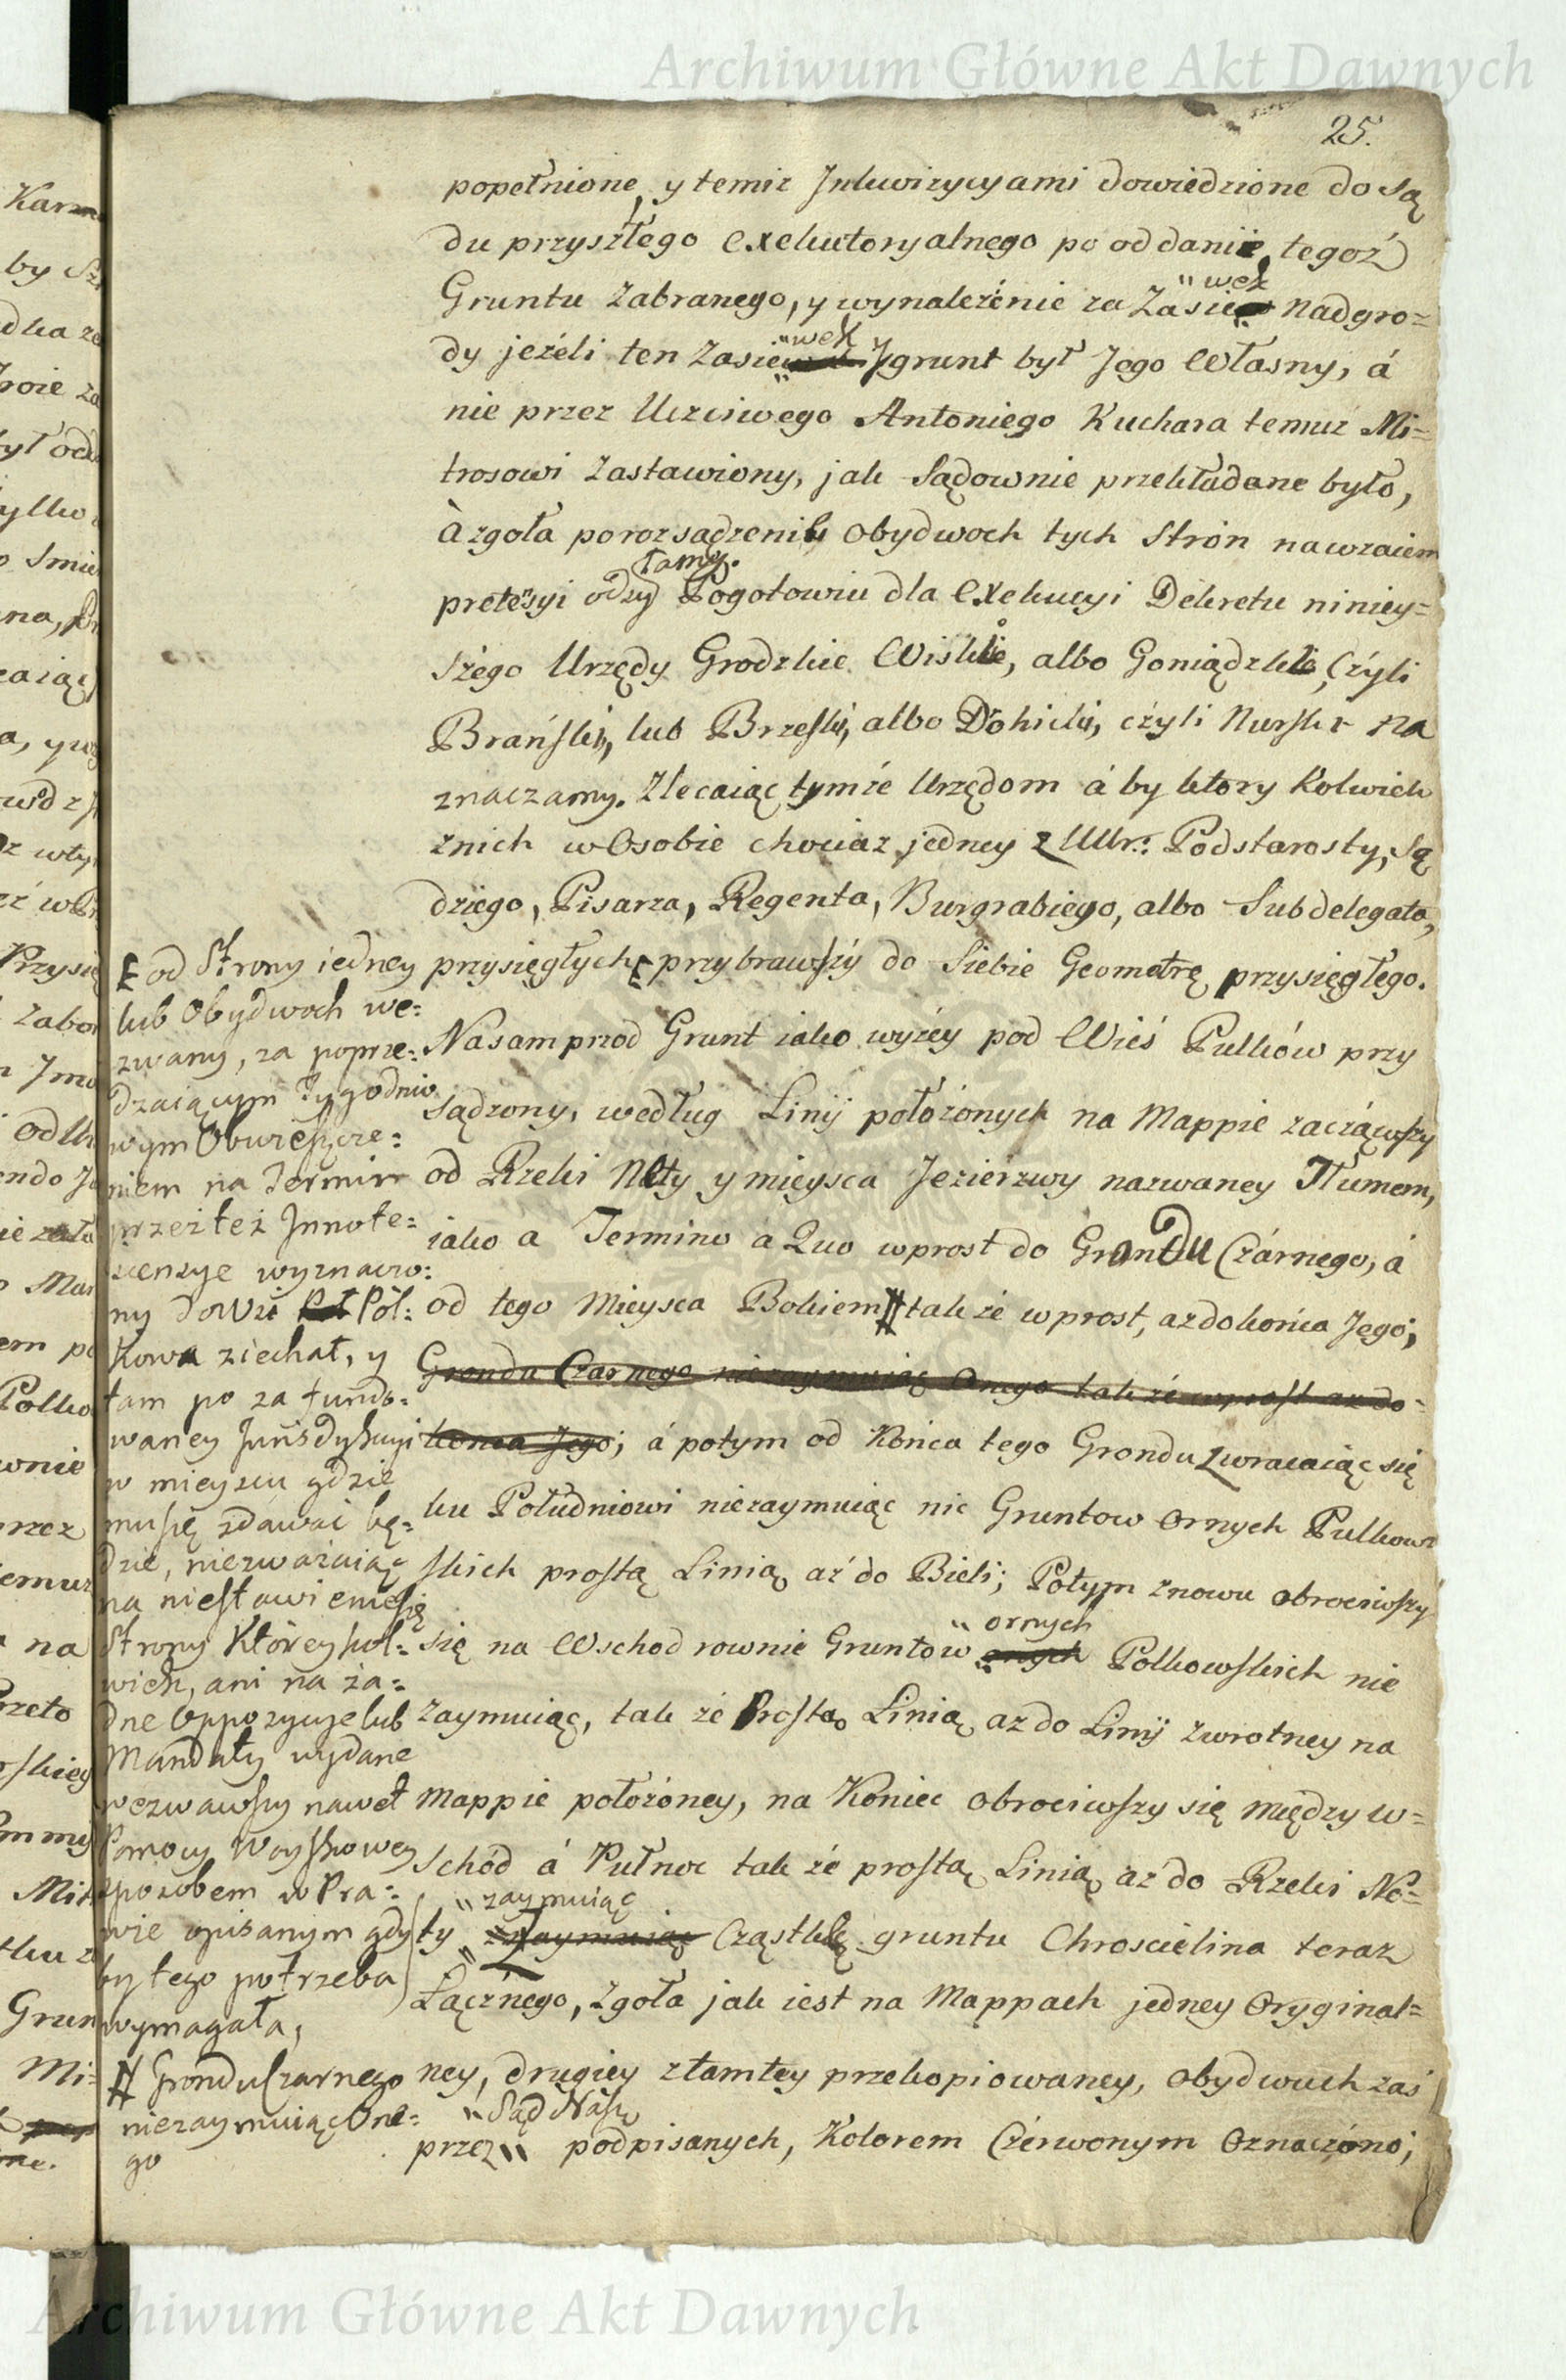 Archiwum Główne Akt Dawnych
25.
popełnione, y temiz Inkwizycyami dowiedzione do Są
du przyszłego exekutoryalnego po oddanie tegoż
"wek
Gruntu zabranego, y wynaleźienie za Zasie nadgro=
"wek y
dy jeżeli ten Zasie grunt był Jego Własny, á
nie przez Uczciwego Antoniego Kuchara temuz Mi=
trosowi zastawiony, jak Sądownie przekładane było,
à zgoła porozsądzeniu obydwoch tych Strón nawzaiem
Tamy.
pretensyi odzy Pogotowiu dla Exekucyi Dekretu niniey=
szégo Urzędy Grodzkie Wiskie, albo Goniądzkie, Czyli
Brańskie, lub Brzeskie, albo Dohickie, czyli Nurskie na
znaczamy. Zlecaiąc tymże Urzędom á by ktory kolwiek
znich w Osobie chociaz jedney z Uur: Podstarosty, Są
dziego, Pisarza, Regenta, Burgrabiego, albo Subdelegata,
przysięgłych, przybrawszy do Siebie Geometrę przysięgłego.
Nasamprzod Grunt iako wyżéy pod Wieś Pulków przy
sądzony, według Linij połozonych na Mappie zacząwszy
od Rzeki Nety y mieysca Jezierzwy nazwaney Tłumem,
iako a Termino a Quo wprost do Grondu Czárnego, á
od tego Mieysca Bokiem # także wprost, aż do końca Jego;
Grondu Czarnego niezaymuiąc Onego także wprost az do=
konca Jego; á potym od Końca tego Grondu zwracaiąc się
ku Południowi niezaymuiąc nic Gruntow ornych Pulkow
skich prostą Linią aż do Bieli; Potym znowu obrociwszy
" ornych
się na Wschod rownie Gruntow ornych Polkowskich nie
zaymuiąc, tak że Prostą Linią aż do Linij zwrotney na
Mappie połozóney, na Koniec obrociwszy się między w=
schód á Pułnoc tak że prostą Linią aż do Rzeki Ne=
" zaymuiąc
ty zaymuiąc Cząstkę gruntu Chroscielina teraz
Łącznego, zgoła jak iest na Mappach jedney Oryginal=
ney, drugiey z tamtey przekopiowaney, obydwuch zaś
" Sąd Nasz
przez " podpisanych, Kolorem Czérwonym Oznaczóno;
od Strony iedney
lub Obydwoch we=
zwany, za poprze=
dzaiącym Tygodnio
wym Obwieszcze=
niem na Termin
przez też Innote=
scencye wyznaczo=
ny do Wsi Pół=
kowa ziechał, y
tam po za fundo=
waney Jurisdykcyi
w mieyscu gdzie
mu się zdawać bę=
dzie, niezwaźaiąc
na niestawienie się
Strony Którey kol=
wiek, ani na ża=
dne Oppozycye lub
Mandaty wydane
wezwawszy nawet
Pomocy Woyskowey
sposobem w Pra=
wie opisanym gdy
by tego potrzeba
wymagała,
# Grondu Czarnego
niezaymuiąc One=
go
Archiwum Główne Akt Dawnych